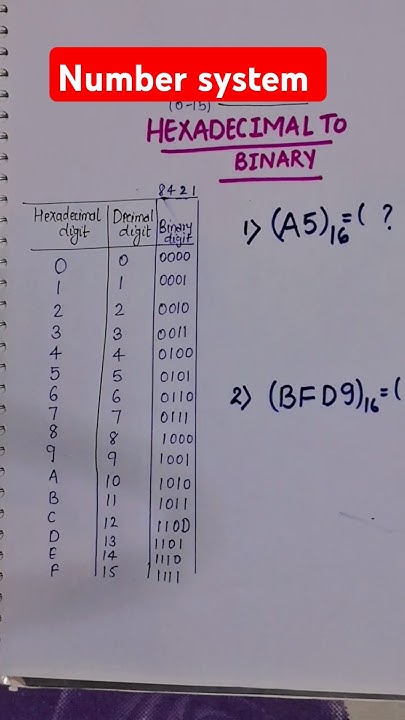 Number system
(0-15)
HEXADECIMAL TO
BINARY
8 4 2 1
Hexadecimal digit | Decimal digit | Binary digit
0 0 0000
1 1 0001
2 2 0010
3 3 0011
4 4 0100
5 5 0101
6 6 0110
7 7 0111
8 8 1000
9 9 1001
A 10 1010
B 11 1011
C 12 1100
D 13 1101
E 14 1110
F 15 1111
1) (A5)16 = ( ?
2) (BFD9)16 = (